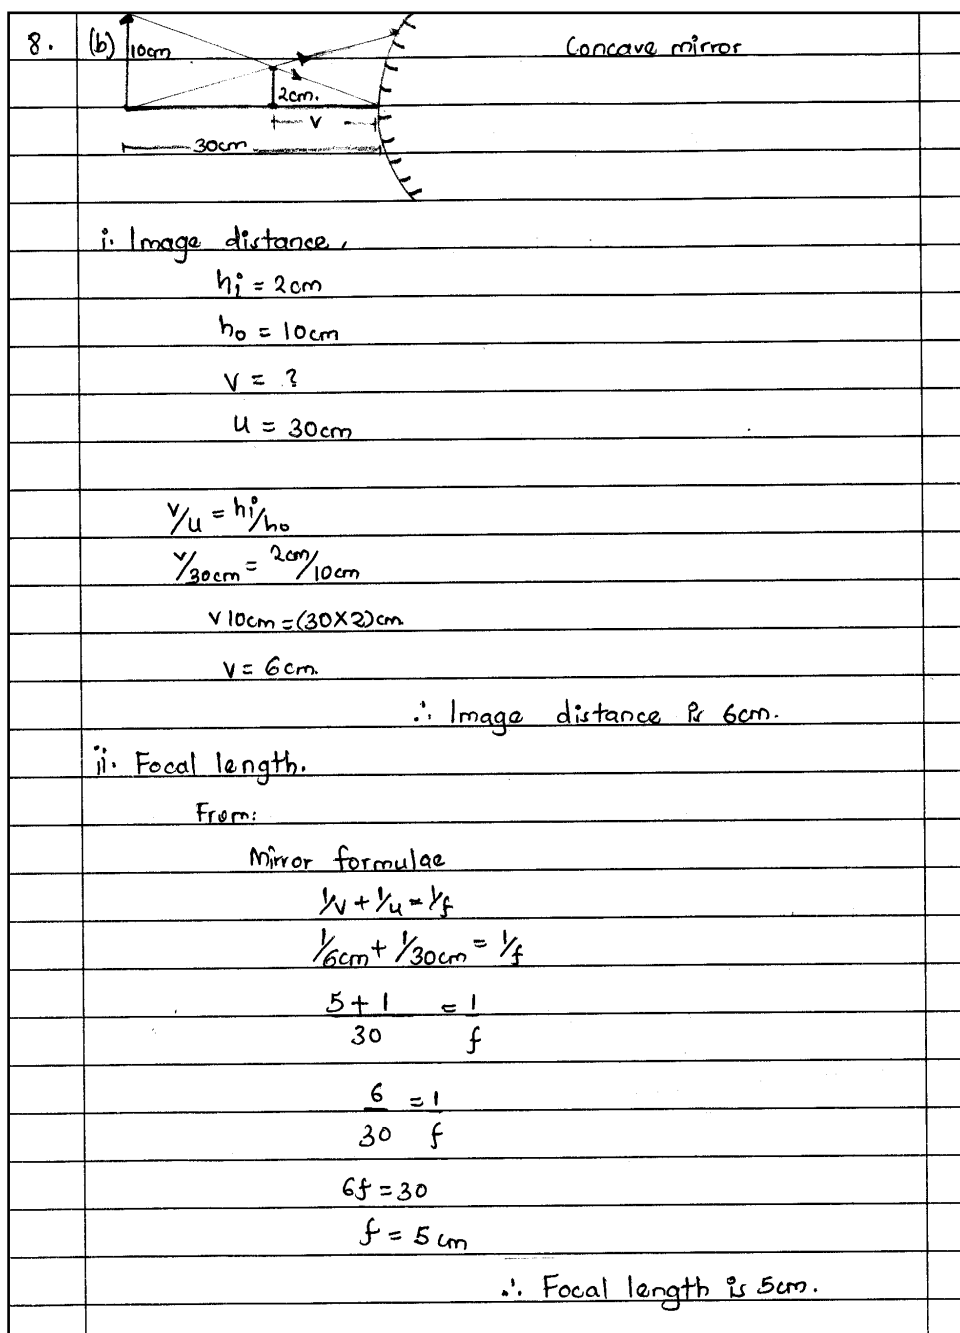 8. (b) 10cm Concave mirror
2cm.
v
30cm
i. Image distance,
hi = 2cm
ho = 10cm
v = ?
u = 30cm
v/u = hi/ho
v/30cm = 2cm/10cm
v 10cm = (30×2)cm
v = 6cm.
∴ Image distance is 6cm.
ii. Focal length.
From:
Mirror formulae
1/v + 1/u = 1/f
1/6cm + 1/30cm = 1/f
5 + 1 = 1
30 f
6 = 1
30 f
6f = 30
f = 5cm
∴ Focal length is 5cm.